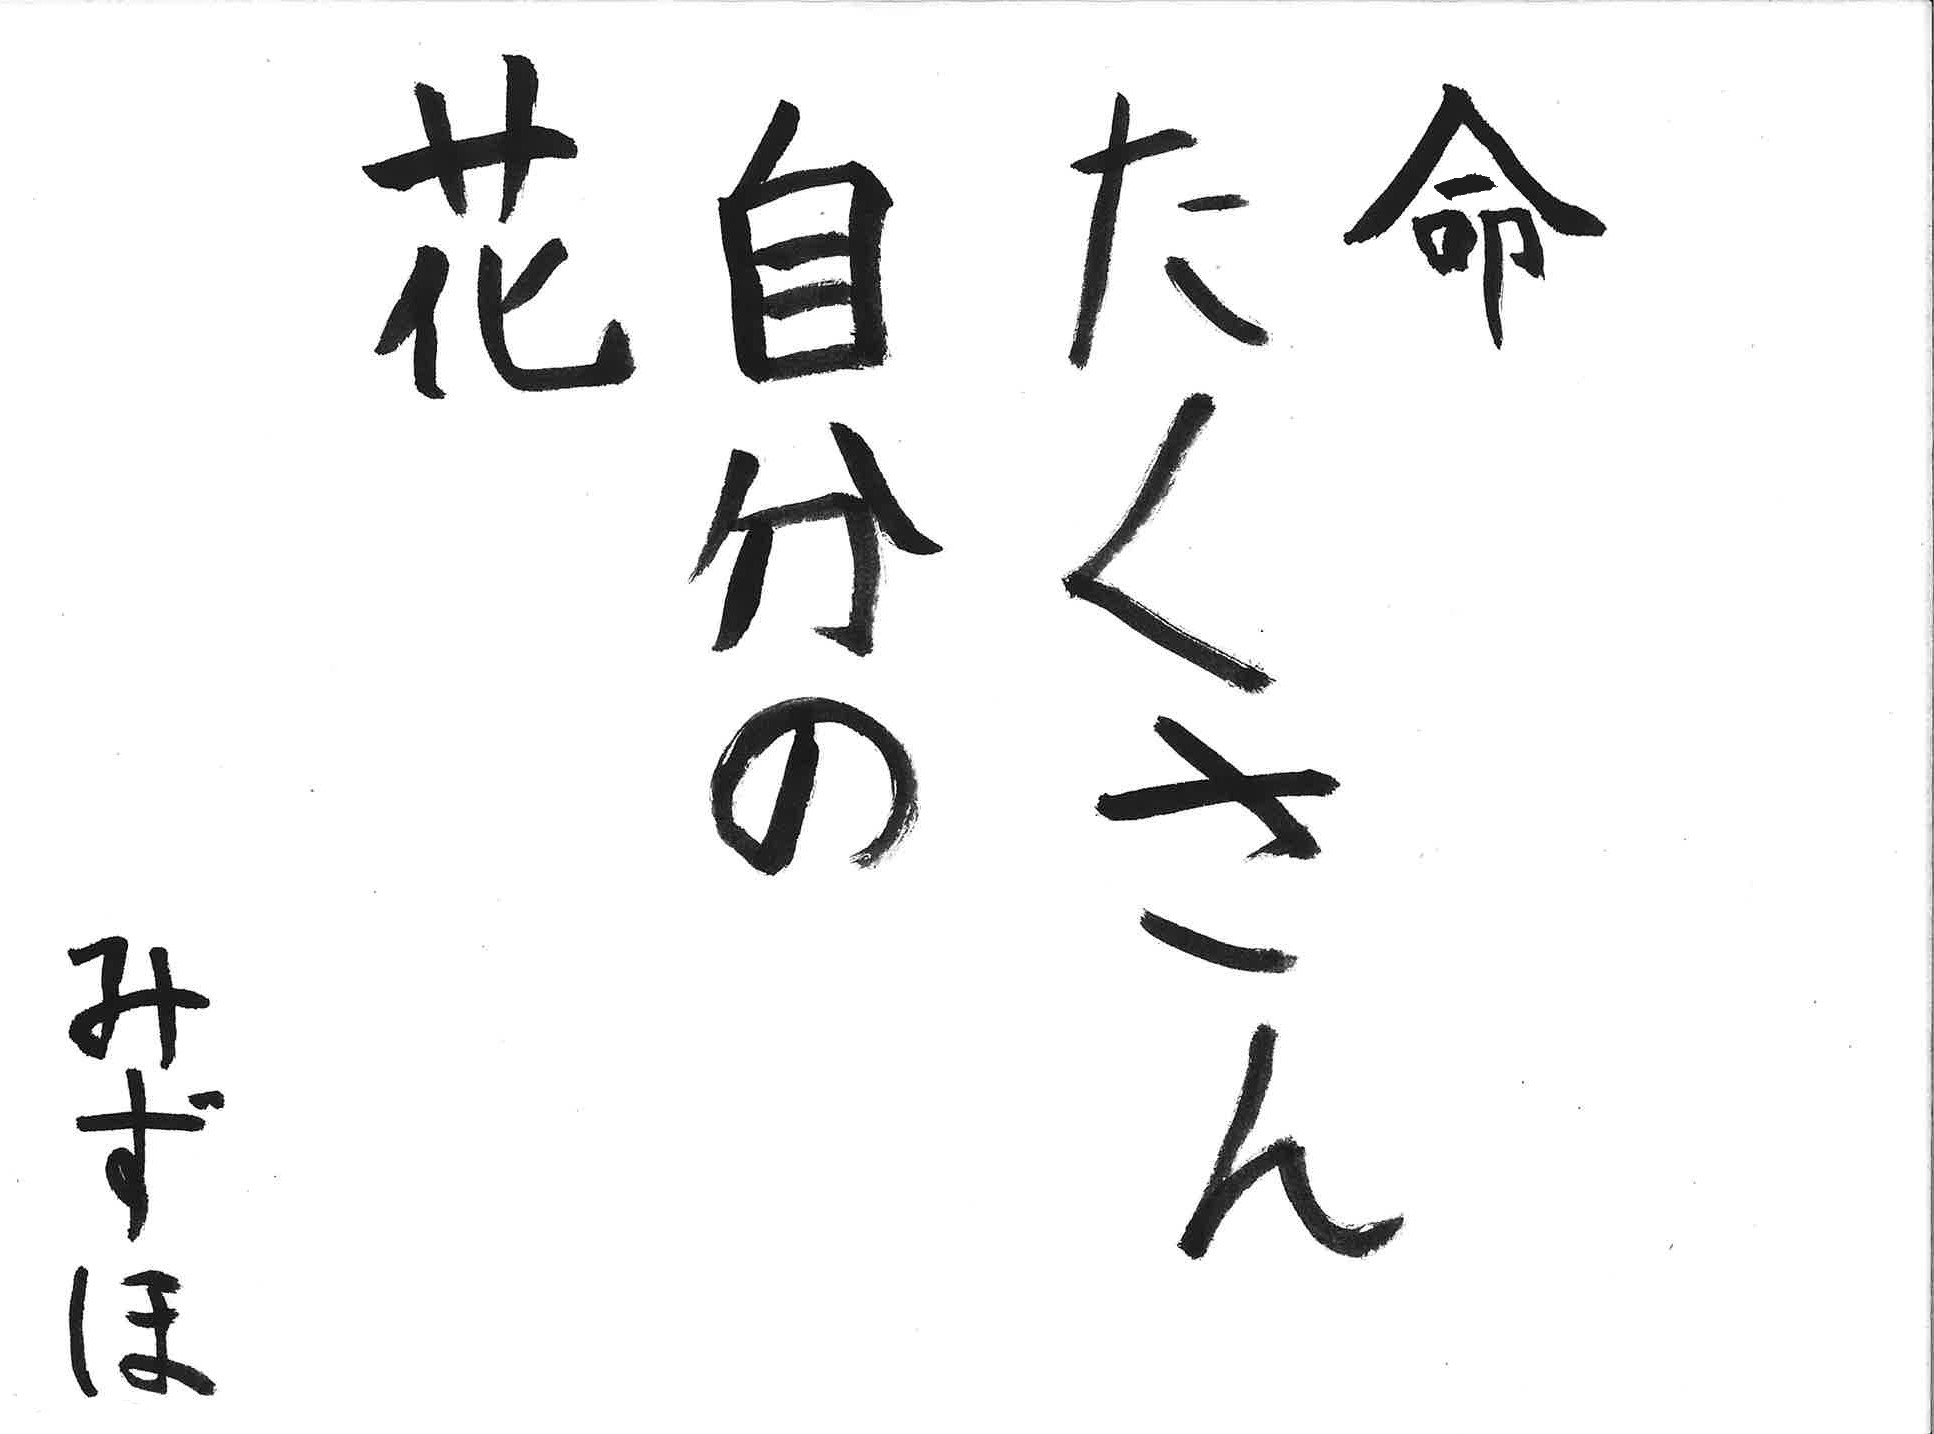 命
たくさん
自分の
花
みずほ